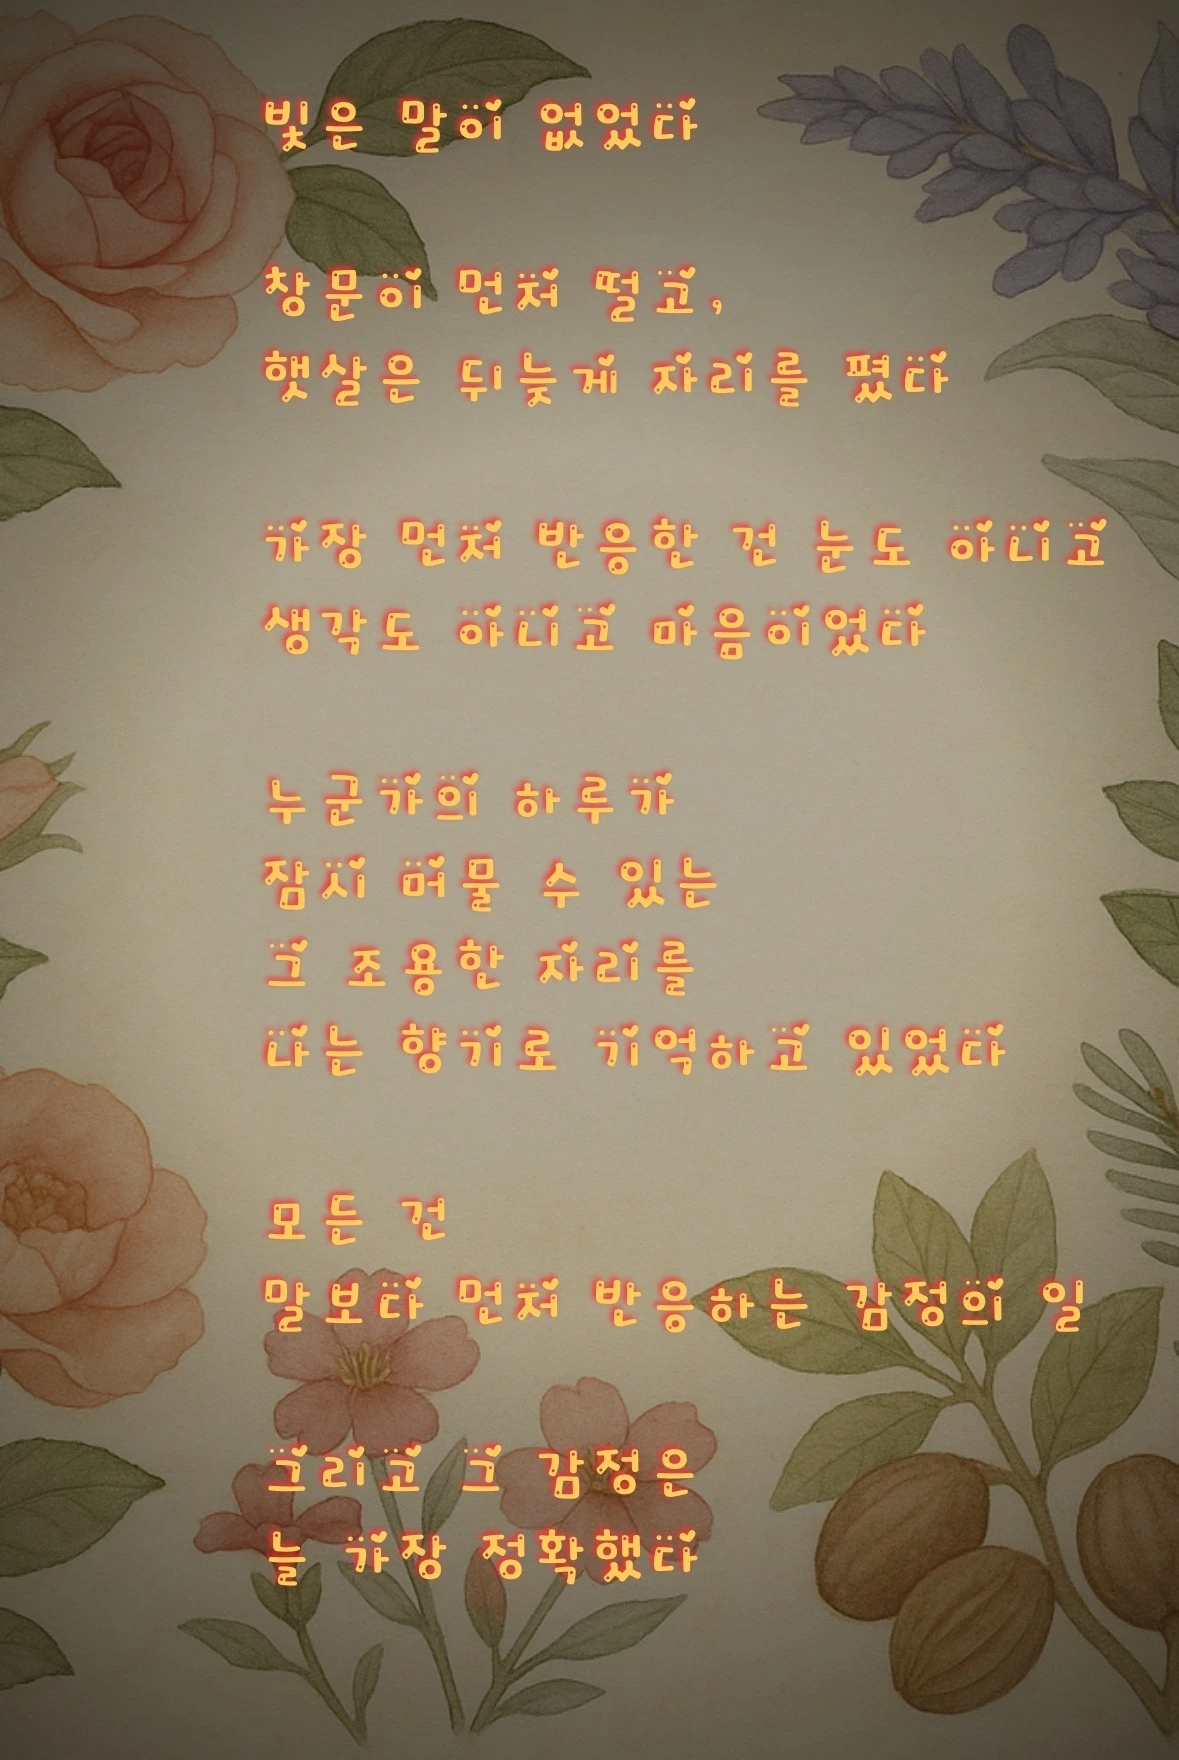 빛은 말이 없었다
창문이 먼저 떨고,
햇살은 뒤늦게 자리를 폈다
가장 먼저 반응한 건 눈도 아니고
생각도 아니고 마음이었다
누군가의 하루가
잠시 머물 수 있는
그 조용한 자리를
나는 향기로 기억하고 있었다
모든 건
말보다 먼저 반응하는 감정의 일
그리고 그 감정은
늘 가장 정확했다